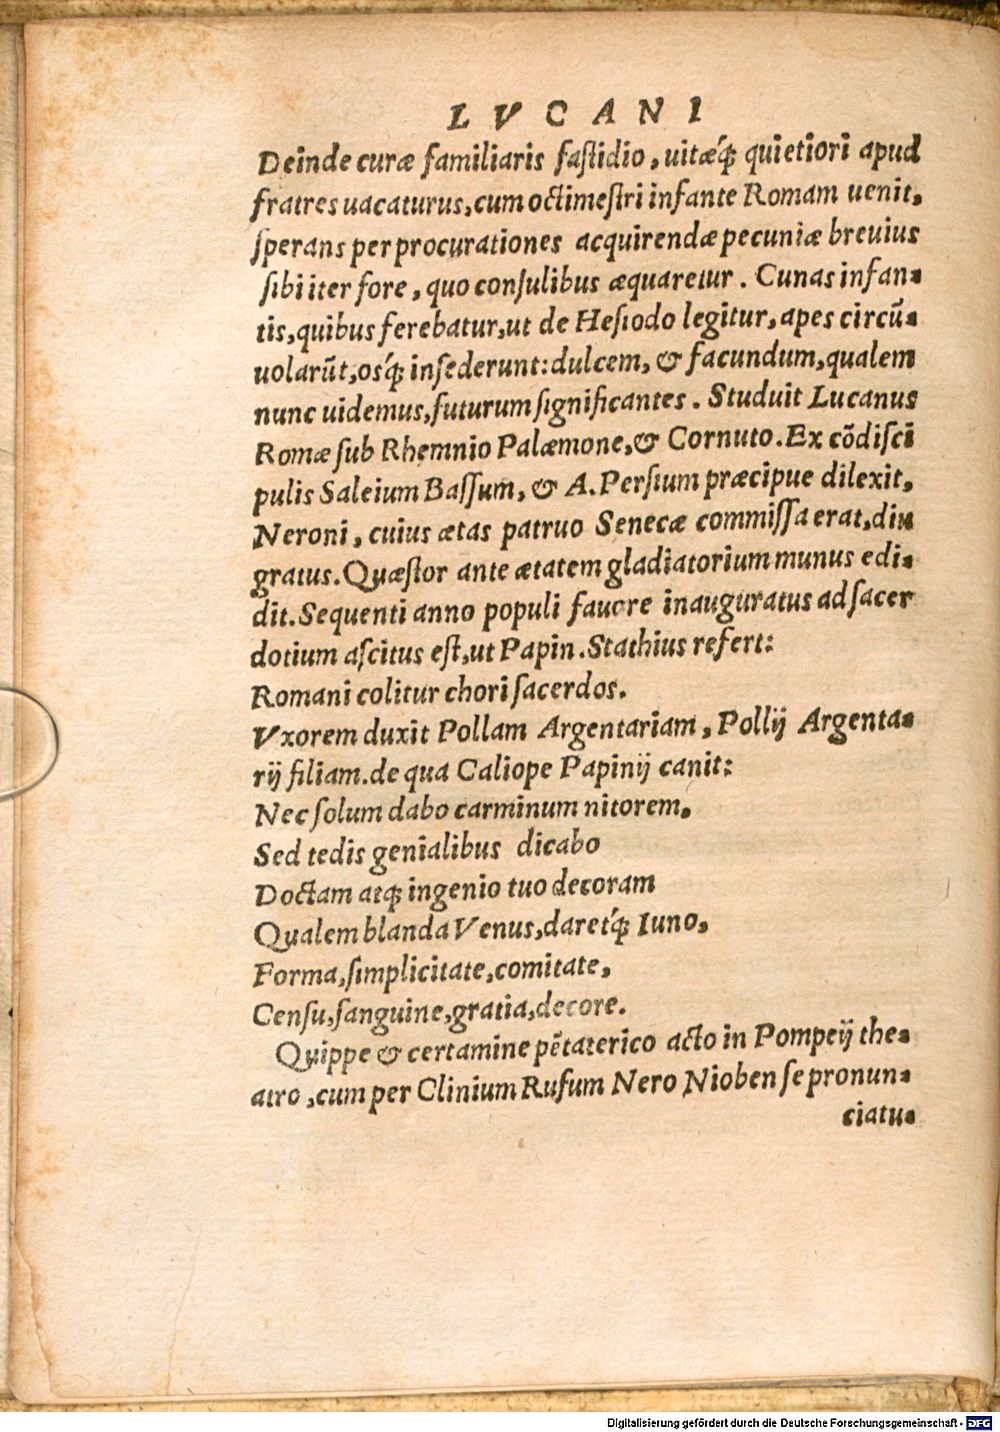 LVCANI
Deinde curæ familiaris fastidio, uitæq́; quietiori apud
fratres uacaturus, cum octimestri infante Romam uenit,
sperans per procurationes acquirendæ pecuniæ breuius
sibi iter fore, quo consulibus æquaretur. Cunas infan-
tis, quibus ferebatur, ut de Hesiodo legitur, apes circū-
uolarūt, osq́; insederunt: dulcem, & facundum, qualem
nunc uidemus, futurum significantes. Studuit Lucanus
Romæ sub Rhemnio Palæmone, & Cornuto. Ex cōdisci
pulis Saleium Bassum, & A. Persium præcipue dilexit,
Neroni, cuius ætas patruo Senecæ commissa erat, diu
gratus. Quæstor ante ætatem gladiatorium munus edi-
dit. Sequenti anno populi fauore inauguratus ad sacer
dotium ascitus est, ut Papin. Stathius refert:
Romani colitur chori sacerdos.
Vxorem duxit Pollam Argentariam, Pollij Argenta-
rij filiam. de qua Caliope Papinij canit:
Nec solum dabo carminum nitorem,
Sed tedis genialibus dicabo
Doctam atq; ingenio tuo decoram
Qualem blanda Venus, daretq́; Iuno,
Forma, simplicitate, comitate,
Censu, sanguine, gratia, decore.
Quippe & certamine pētaterico acto in Pompeij the-
atro, cum per Clinium Rufum Nero Nioben se pronun-
ciatu-
Digitalisierung gefördert durch die Deutsche Forschungsgemeinschaft - DFG